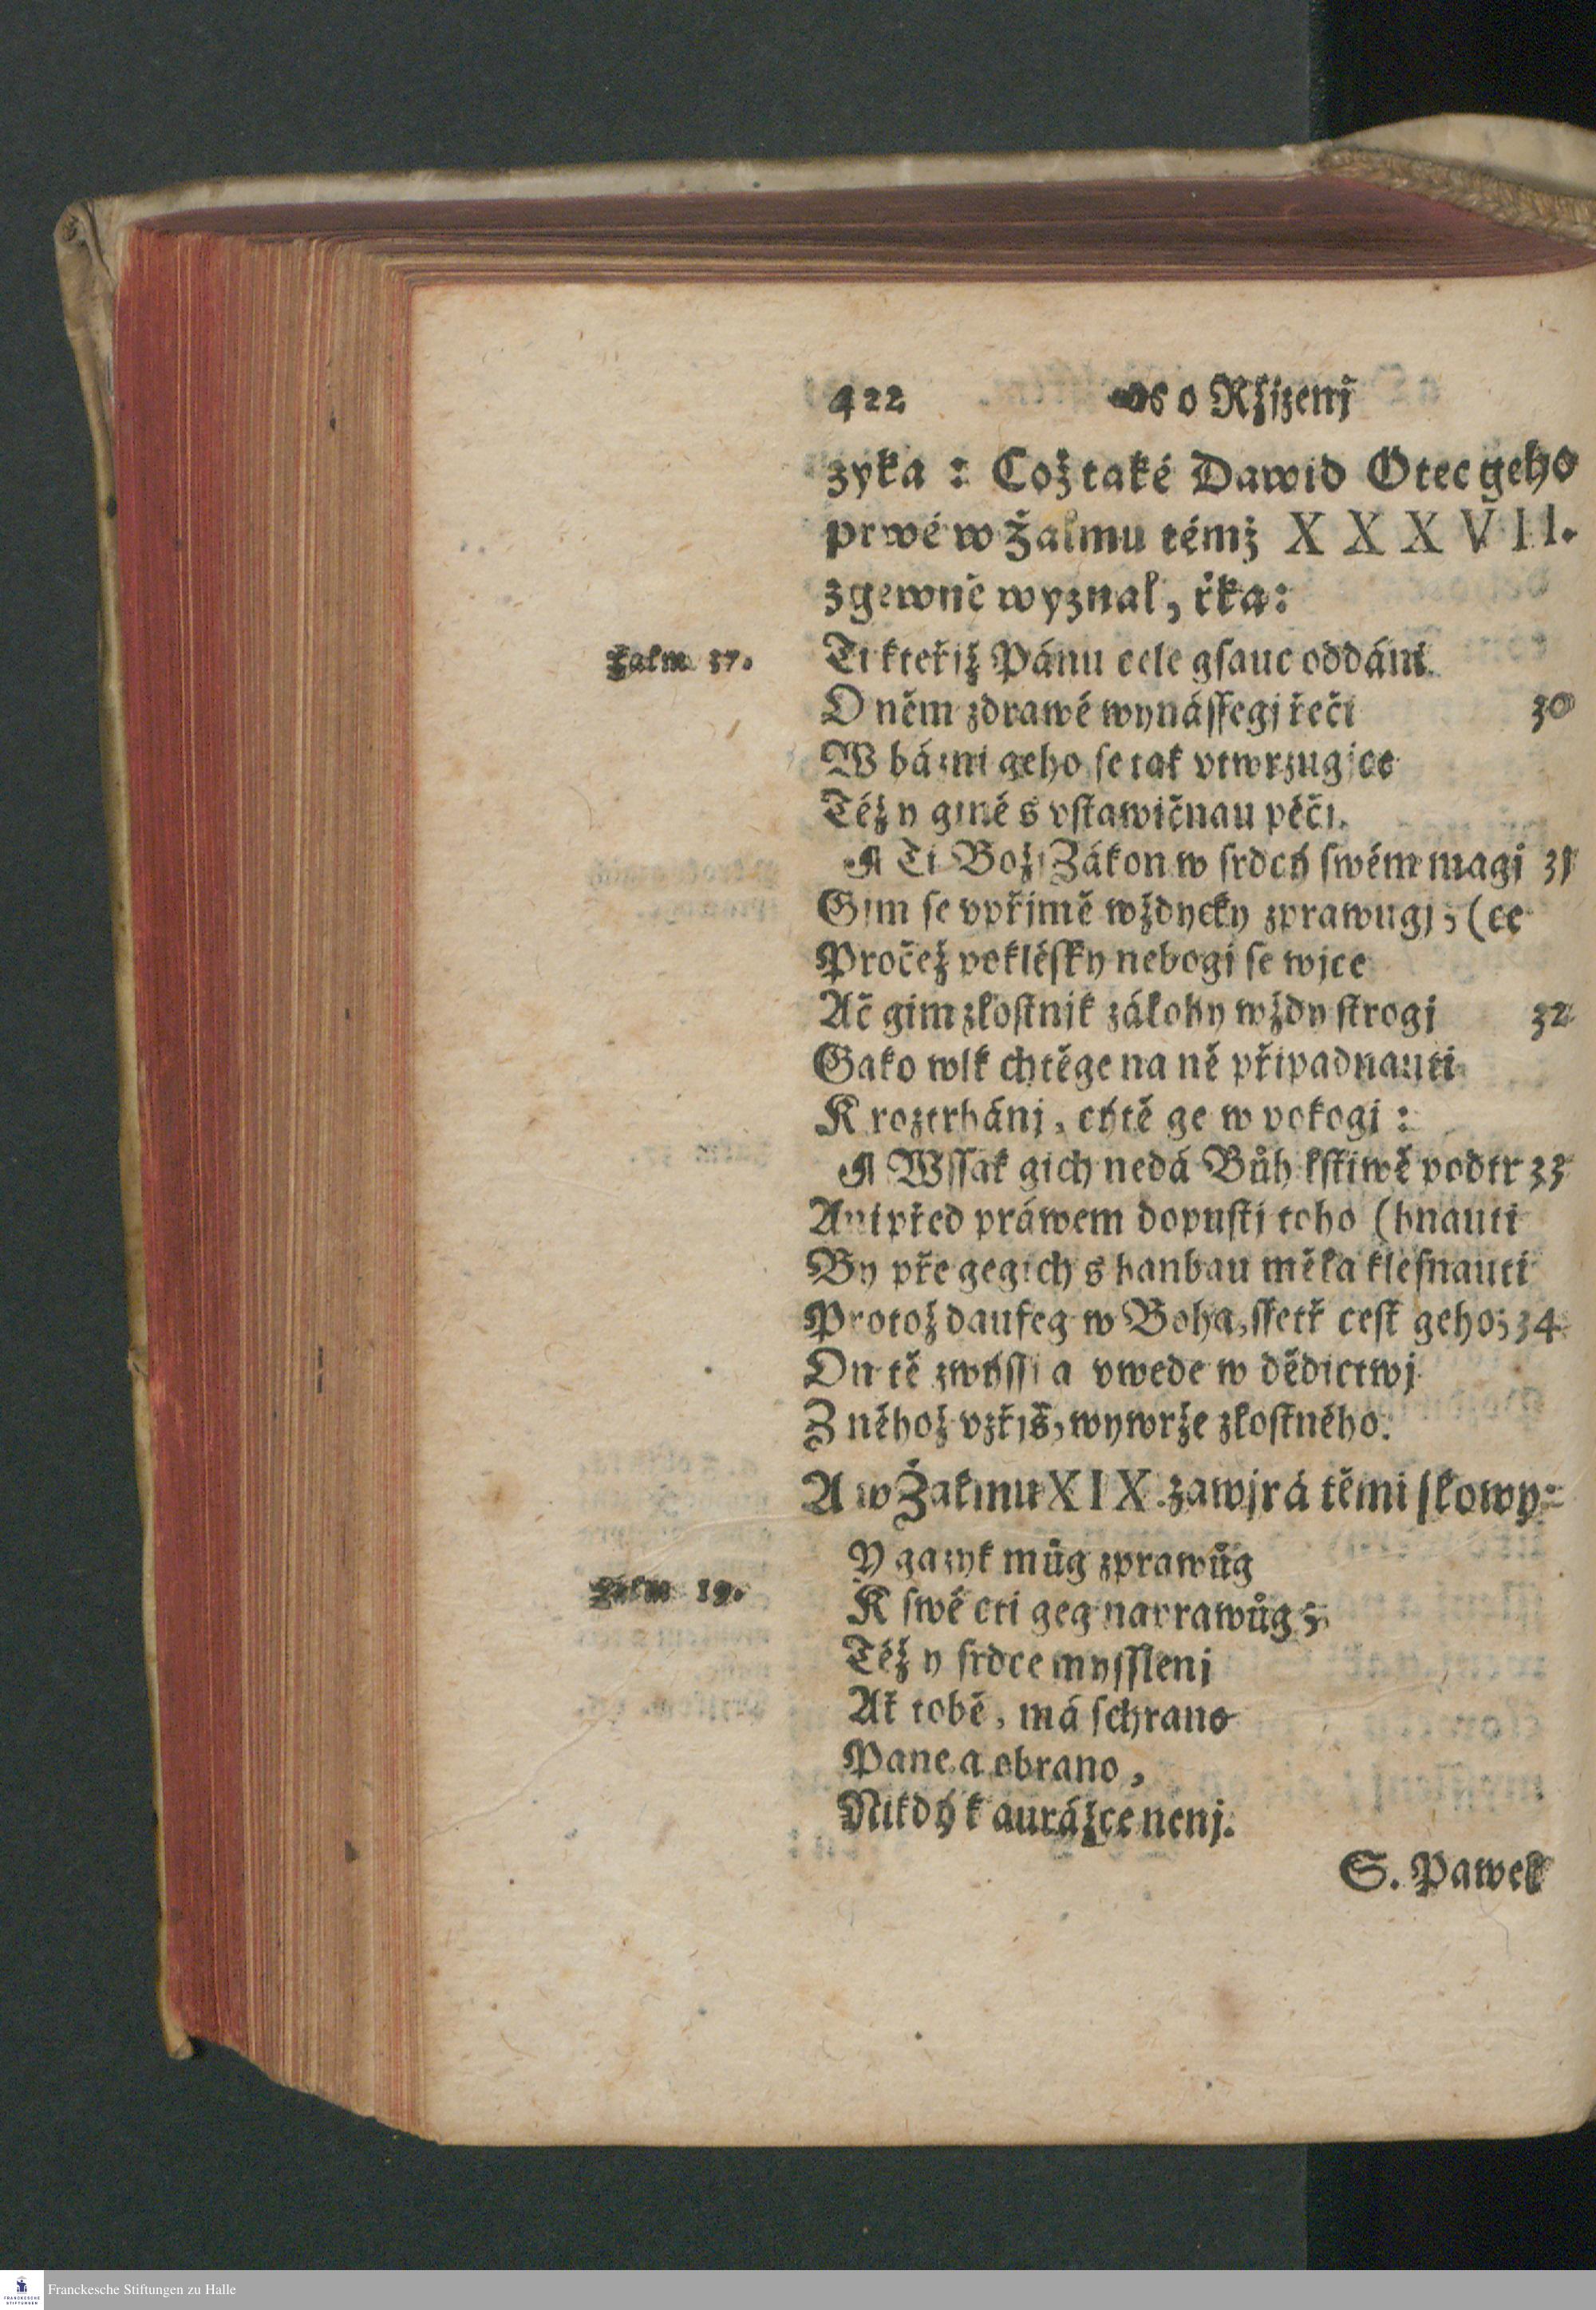 422 o Ržjzenj
zyka : Což také Dawid Otec geho
prwé w Žalmu témž XXXVII.
zgewně wyznal, řka:
Žalm 37. Ti kteřjž Pánu cele gsauc oddáni
O něm zdrawé wynássegj řeči 30
W bázni geho se tak vtwrzugjce
Též y giné s vstawičnau péčí.
¶ Ti Božj Zákon w srdcy swém magj 31
Gjm se vpřjmě wždycky zprawugj, (ce
Pročež poklésky nebogj se wjce
Ač gim zlostnjk zálohy wždy strogj 32
Gako wlk chtěge na ně připadnauti
K roztrhánj, chtě ge w pokogi :
¶ Wssak gich nedá Bůh lstiwě podtr 33
Ani před práwem dopustj toho (hnauti
By pře gegich s hanbau měla klesnauti
Protož daufeg w Boha, ssetř cest geho; 34
On tě zwýssj a vwede w dědictwj
Z něhož vzřjš, wywrže zlostného.
A w Žalmu XIX. zawjrá těmi slowy:
Y gazyk můg zprawůg
Žalm 19. K swé cti geg naprawůg;
Též y srdce myssleni
Ať tobě, má schrano
Pane a obrano,
Nikdý k aurážce nenj.
S. Pawel
Franckesche Stiftungen zu Halle